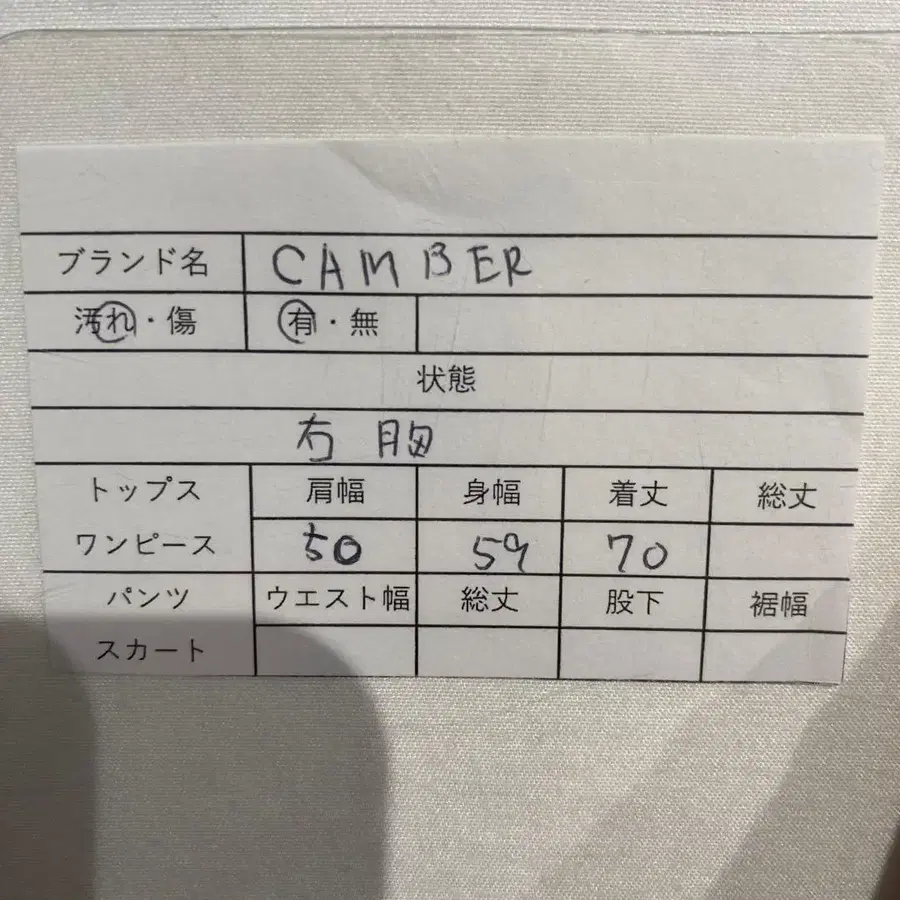 ブランド名 CAMBER
汚れ・傷 有・無
状態
右胸
トップス 肩幅 身幅 着丈 総丈
ワンピース 50 59 70
パンツ ウエスト幅 総丈 股下 裾幅
スカート